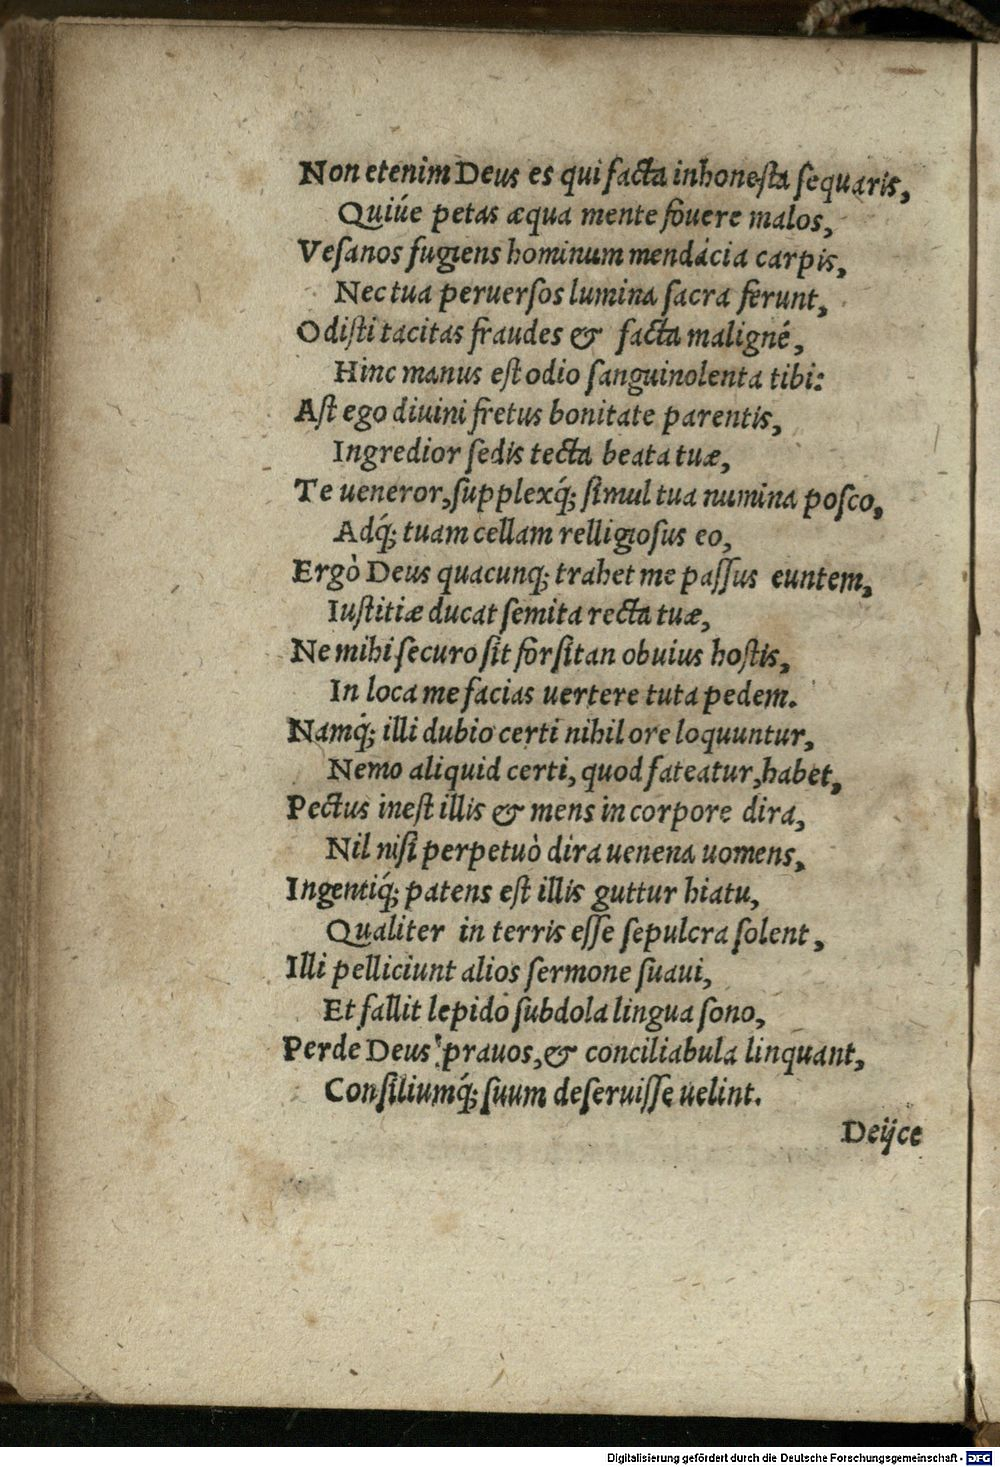 Non etenim Deus es qui facta inhonesta sequaris,
Quiúe petas æqua mente fouere malos,
Vesanos fugiens hominum mendacia carpis,
Nec tua peruersos lumina sacra ferunt,
Odisti tacitas fraudes & facta maligné,
Hinc manus est odio sanguinolenta tibi:
Ast ego diuini fretus bonitate parentis,
Ingredior sedis tecta beata tuæ,
Te ueneror, supplexq́; simul tua numina posco,
Adq́; tuam cellam relligiosus eo,
Ergò Deus quacunq; trahet me passus euntem,
Iustitiæ ducat semita recta tuæ,
Ne mihi securo sit forsitan obuius hostis,
In loca me facias uertere tuta pedem.
Namq́; illi dubio certi nihil ore loquuntur,
Nemo aliquid certi, quod fateatur, habet,
Pectus inest illis & mens in corpore dira,
Nil nisi perpetuò dira uenena uomens,
Ingentiq́; patens est illis guttur hiatu,
Qualiter in terris esse sepulcra solent,
Illi pelliciunt alios sermone suaui,
Et fallit lepido subdola lingua sono,
Perde Deus prauos, & conciliabula linquant,
Consiliumq́; suum deseruisse uelint.
Deijce
Digitalisierung gefördert durch die Deutsche Forschungsgemeinschaft - DFG